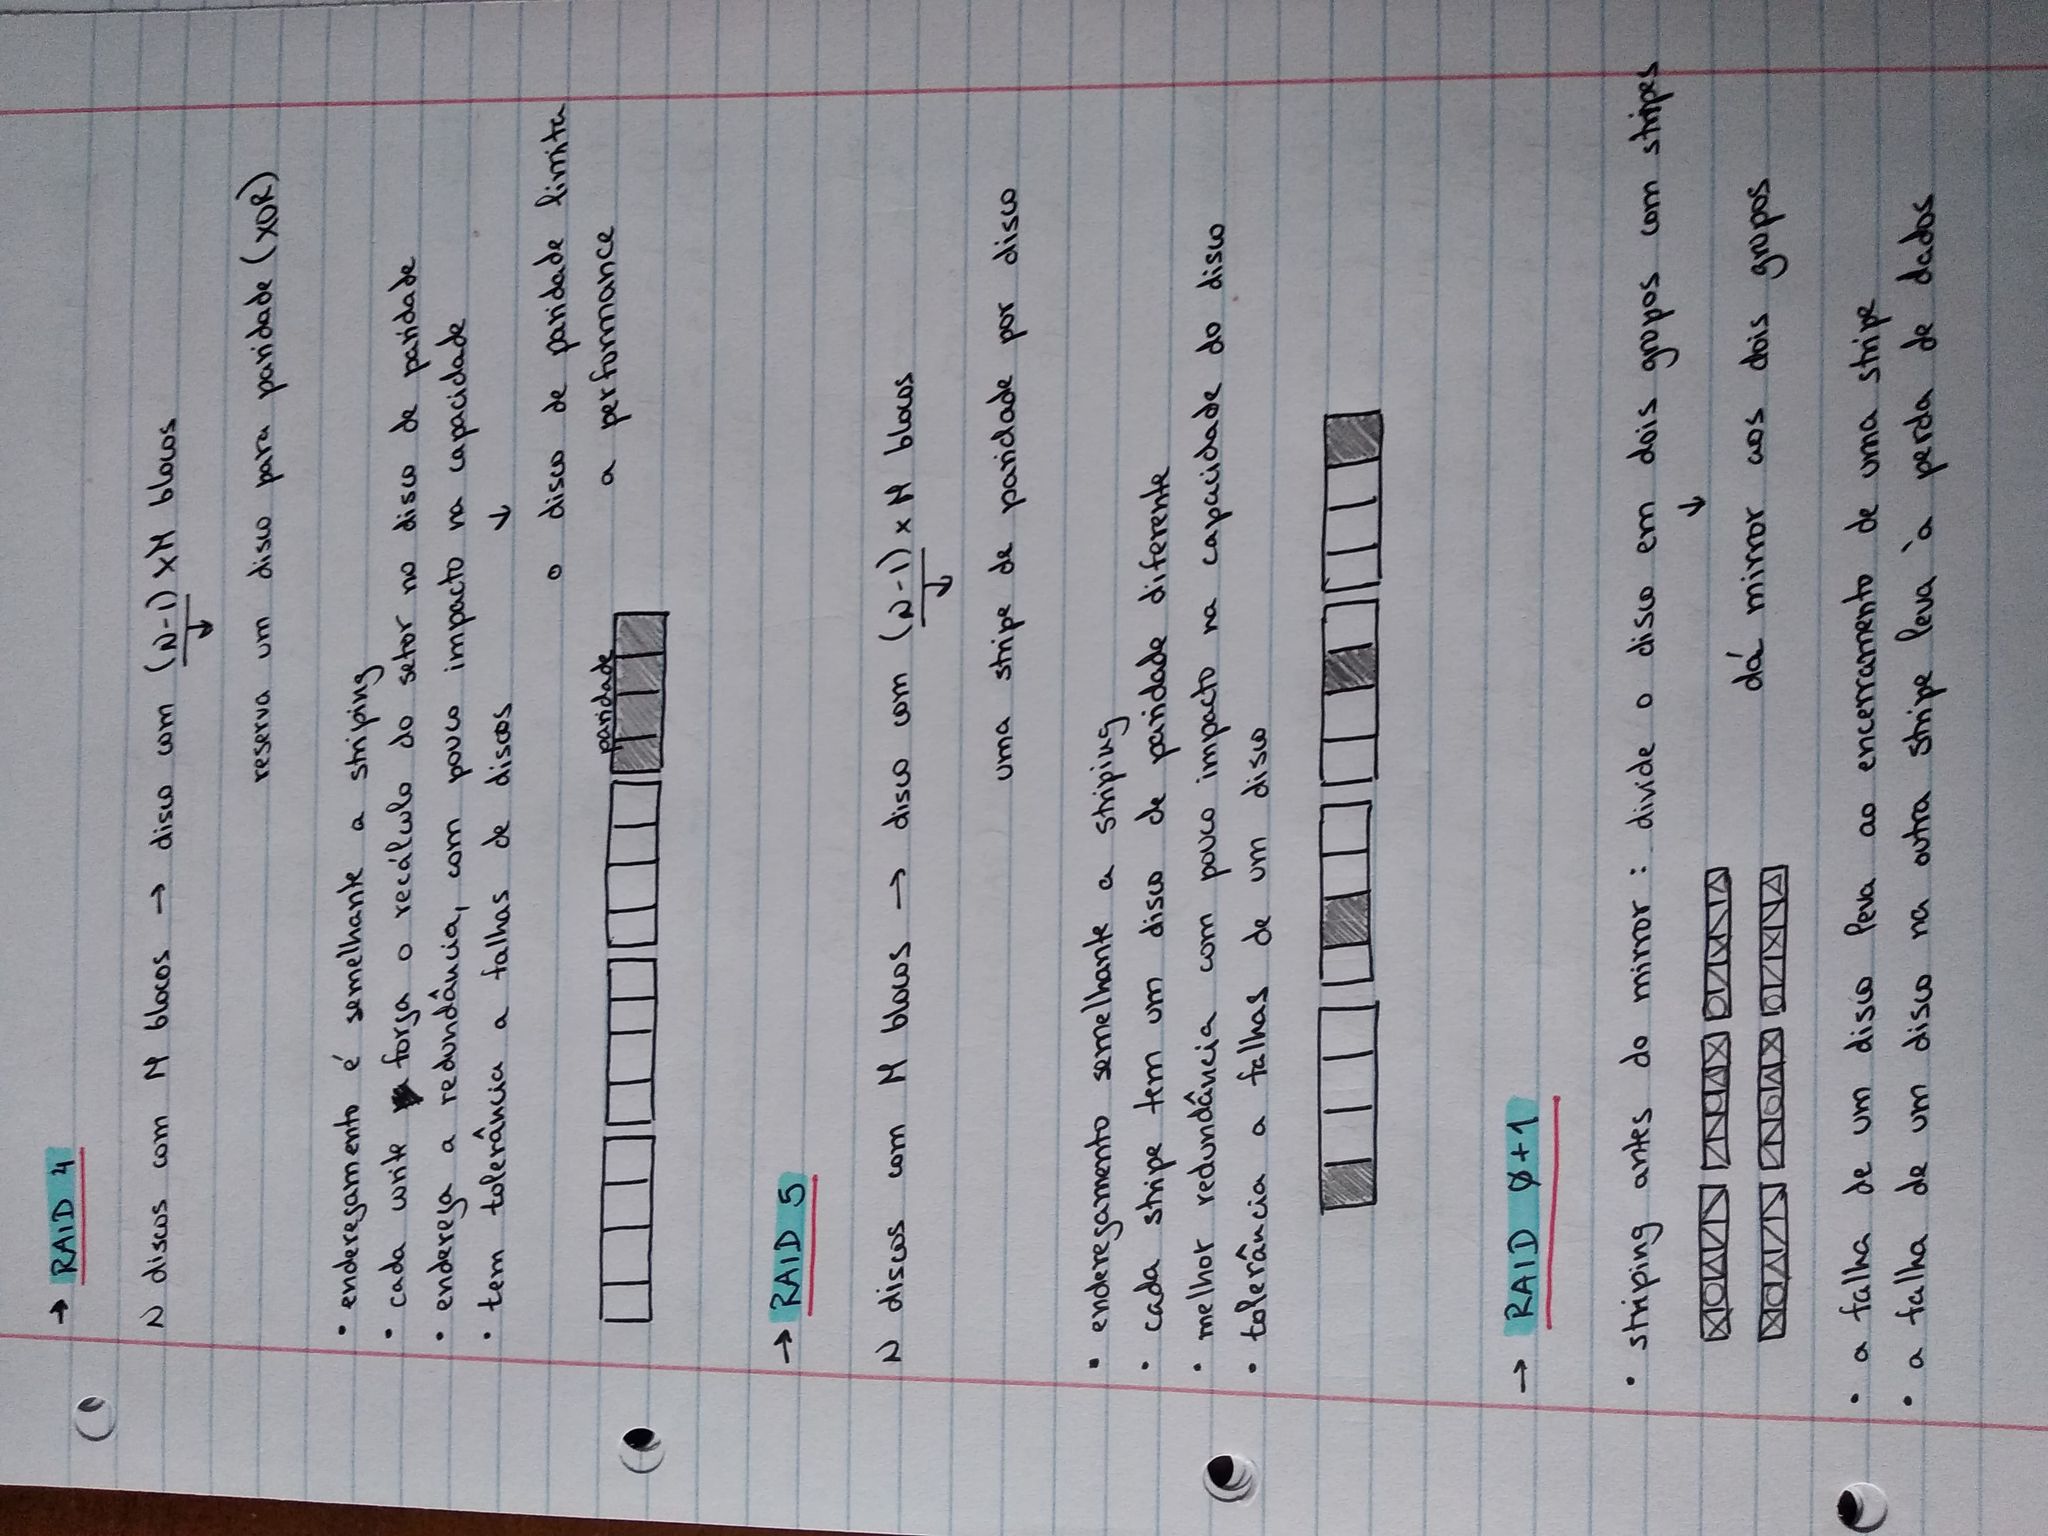 → RAID 4
N discos com M blocos → disco com (N-1) x M blocos
↓
reserva um disco para paridade (XOR)
• endereçamento é semelhante a striping
• cada write força o recálculo do setor no disco de paridade
• endereça a redundância, com pouco impacto na capacidade
• tem tolerância a falhas de discos
↓
o disco de paridade limita
a performance
paridade
→ RAID 5
N discos com M blocos → disco com (N-1) x M blocos
↓
uma stripe de paridade por disco
• endereçamento semelhante a striping
• cada stripe tem um disco de paridade diferente
• melhor redundância com pouco impacto na capacidade do disco
• tolerância a falhas de um disco
→ RAID 0+1
• striping antes do mirror : divide o disco em dois grupos com stripes
↓
dá mirror aos dois grupos
• a falha de um disco leva ao encerramento de uma stripe
• a falha de um disco na outra stripe leva à perda de dados